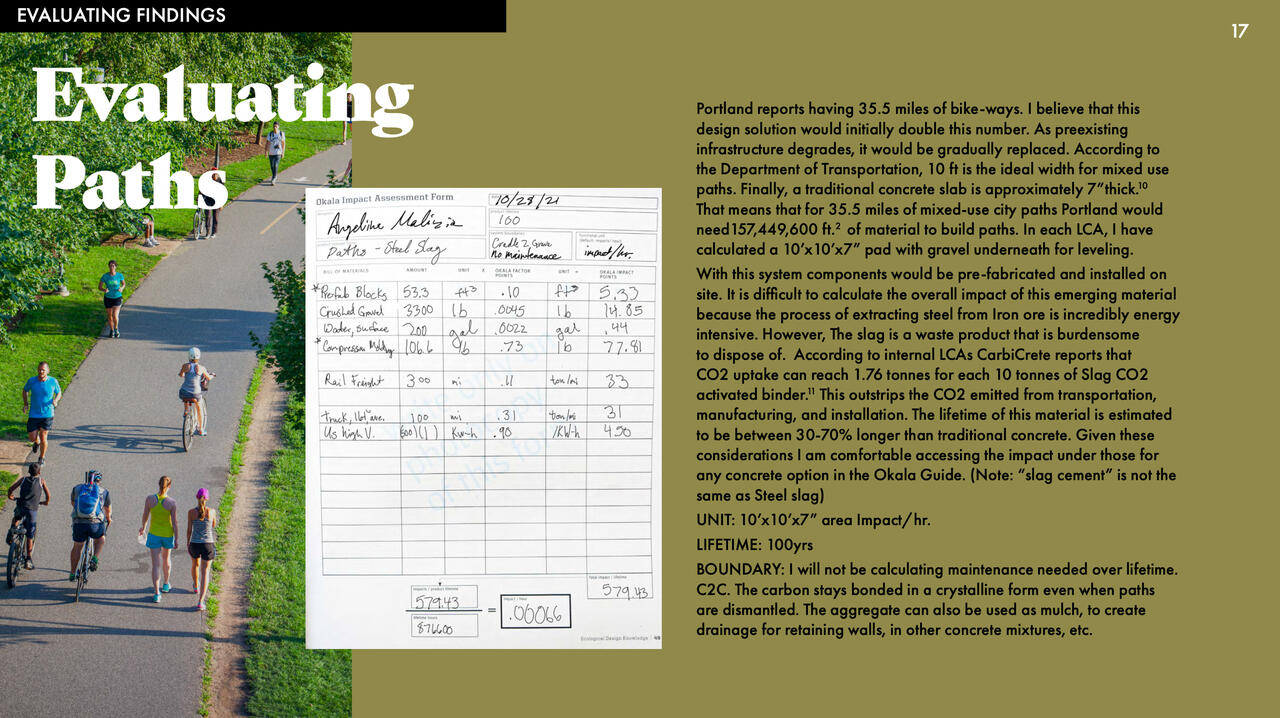 EVALUATING FINDINGS
17
Evaluating
Paths
Portland reports having 35.5 miles of bike-ways. I believe that this
design solution would initially double this number. As preexisting
infrastructure degrades, it would be gradually replaced. According to
the Department of Transportation, 10 ft is the ideal width for mixed use
paths. Finally, a traditional concrete slab is approximately 7”thick.¹⁰
That means that for 35.5 miles of mixed-use city paths Portland would
need157,449,600 ft.² of material to build paths. In each LCA, I have
calculated a 10’x10’x7” pad with gravel underneath for leveling.
With this system components would be pre-fabricated and installed on
site. It is difficult to calculate the overall impact of this emerging material
because the process of extracting steel from Iron ore is incredibly energy
intensive. However, The slag is a waste product that is burdensome
to dispose of. According to internal LCAs CarbiCrete reports that
CO2 uptake can reach 1.76 tonnes for each 10 tonnes of Slag CO2
activated binder.¹¹ This outstrips the CO2 emitted from transportation,
manufacturing, and installation. The lifetime of this material is estimated
to be between 30-70% longer than traditional concrete. Given these
considerations I am comfortable accessing the impact under those for
any concrete option in the Okala Guide. (Note: “slag cement” is not the
same as Steel slag)
UNIT: 10’x10’x7” area Impact/hr.
LIFETIME: 100yrs
BOUNDARY: I will not be calculating maintenance needed over lifetime.
C2C. The carbon stays bonded in a crystalline form even when paths
are dismantled. The aggregate can also be used as mulch, to create
drainage for retaining walls, in other concrete mixtures, etc.
Okala Impact Assessment Form
10/28/21
Angeline
100
Paths - Steel Slag
system boundaries
Cradle 2 Grave
No maintenance
functional unit
impact/hr.
BILL OF MATERIALS AMOUNT UNIT X OKALA FACTOR POINTS UNIT = OKALA IMPACT POINTS
*Prefab Blocks 53.3 ft³ .10 ft³ 5.33
Crushed Gravel 3300 lb .0045 lb 14.85
Water, surface 200 gal .0022 gal .44
*Compression Molding 106.6 lb .73 lb 77.81
Rail Freight 300 mi .11 ton/mi 33
truck, 100 mi .31 ton/mi 31
US high V. Kw-h .90 /KW-h 450
Total impact / lifetime
579.43
impacts / product lifetime
579.43
lifetime hours
876600
=
impact / hour
.00066
Ecological Design Knowledge | 49